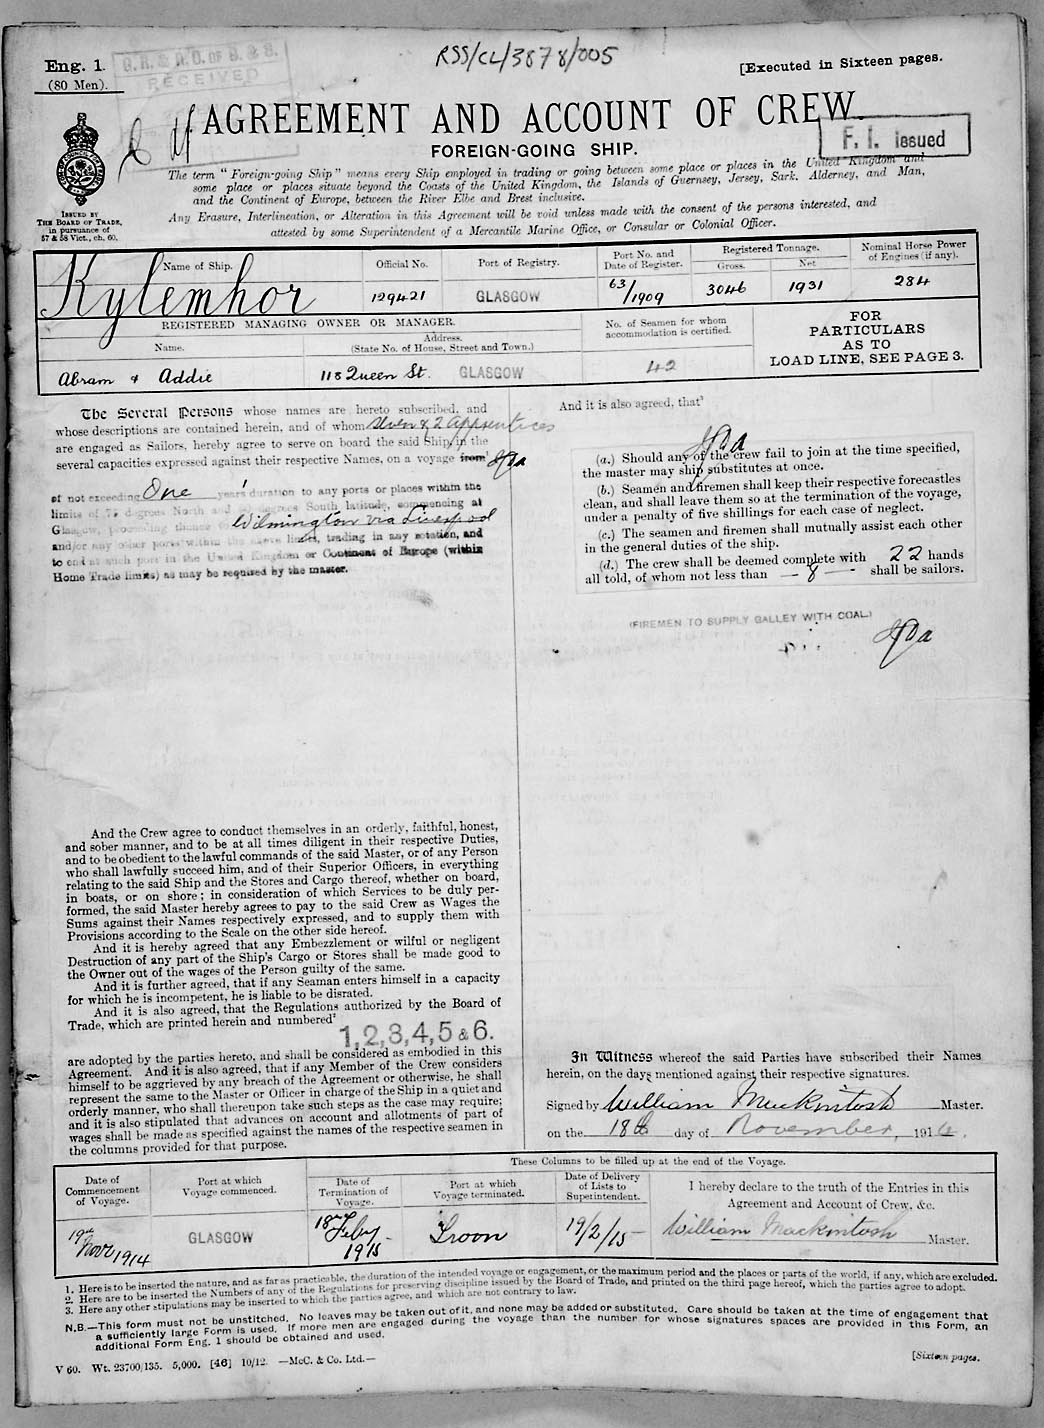 RSS/CL/3878/005
Eng. 1.
(80 Men).
G.R. & R.O. OF S. & S.
RECEIVED
[Executed in Sixteen pages.
AGREEMENT AND ACCOUNT OF CREW.
F. I. issued
FOREIGN-GOING SHIP.
ISSUED BY
THE BOARD OF TRADE,
in pursuance of
57 & 58 Vict., ch. 60.
The term "Foreign-going Ship" means every Ship employed in trading or going between some place or places in the United Kingdom and
some place or places situate beyond the Coasts of the United Kingdom, the Islands of Guernsey, Jersey, Sark, Alderney, and Man,
and the Continent of Europe, between the River Elbe and Brest inclusive.
Any Erasure, Interlineation, or Alteration in this Agreement will be void unless made with the consent of the persons interested, and
attested by some Superintendent of a Mercantile Marine Office, or Consular or Colonial Officer.
Name of Ship.
Official No.
Port of Registry.
Port No. and
Date of Register.
Registered Tonnage.
Gross.
Net
Nominal Horse Power
of Engines (if any).
Kylemhor
129421
GLASGOW
63/1909
3046
1931
284
REGISTERED MANAGING OWNER OR MANAGER.
Name.
Address.
(State No. of House, Street and Town.)
No. of Seamen for whom
accommodation is certified.
FOR
PARTICULARS
AS TO
LOAD LINE, SEE PAGE 3.
Abram & Addie
118 Queen St. GLASGOW
42
The Several Persons whose names are hereto subscribed, and
whose descriptions are contained herein, and of whom seven & 2 apprentices
are engaged as Sailors, hereby agree to serve on board the said Ship, in the
several capacities expressed against their respective Names, on a voyage from¹
of not exceeding One years' duration to any ports or places within the
limits of 75 degrees North and degrees South latitude, commencing at
Glasgow, proceeding thence to Wilmington via Liverpool
and/or any other ports within the above limits, trading in any rotation, and
to end at such port in the United Kingdom or Continent of Europe (within
Home Trade limits) as may be required by the master.
And the Crew agree to conduct themselves in an orderly, faithful, honest,
and sober manner, and to be at all times diligent in their respective Duties,
and to be obedient to the lawful commands of the said Master, or of any Person
who shall lawfully succeed him, and of their Superior Officers, in everything
relating to the said Ship and the Stores and Cargo thereof, whether on board,
in boats, or on shore; in consideration of which Services to be duly per-
formed, the said Master hereby agrees to pay to the said Crew as Wages the
Sums against their Names respectively expressed, and to supply them with
Provisions according to the Scale on the other side hereof.
And it is hereby agreed that any Embezzlement or wilful or negligent
Destruction of any part of the Ship's Cargo or Stores shall be made good to
the Owner out of the wages of the Person guilty of the same.
And it is further agreed, that if any Seaman enters himself in a capacity
for which he is incompetent, he is liable to be disrated.
And it is also agreed, that the Regulations authorized by the Board of
Trade, which are printed herein and numbered²
1, 2, 3, 4, 5 & 6.
are adopted by the parties hereto, and shall be considered as embodied in this
Agreement. And it is also agreed, that if any Member of the Crew considers
himself to be aggrieved by any breach of the Agreement or otherwise, he shall
represent the same to the Master or Officer in charge of the Ship in a quiet and
orderly manner, who shall thereupon take such steps as the case may require;
and it is also stipulated that advances on account and allotments of part of
wages shall be made as specified against the names of the respective seamen in
the columns provided for that purpose.
And it is also agreed, that³
(a.) Should any of the crew fail to join at the time specified,
the master may ship substitutes at once.
(b.) Seamen and firemen shall keep their respective forecastles
clean, and shall leave them so at the termination of the voyage,
under a penalty of five shillings for each case of neglect.
(c.) The seamen and firemen shall mutually assist each other
in the general duties of the ship.
(d.) The crew shall be deemed complete with 22 hands
all told, of whom not less than — 8 — shall be sailors.
(FIREMEN TO SUPPLY GALLEY WITH COAL.)
In Witness whereof the said Parties have subscribed their Names
herein, on the days mentioned against their respective signatures.
Signed by William Mackintosh Master.
on the 18th day of November, 1914.
These Columns to be filled up at the end of the Voyage.
Date of
Commencement
of Voyage.
Port at which
Voyage commenced.
Date of
Termination of
Voyage.
Port at which
Voyage terminated.
Date of Delivery
of Lists to
Superintendent.
I hereby declare to the truth of the Entries in this
Agreement and Account of Crew, &c.
19th Novr 1914
GLASGOW
18th Feby 1915
Troon
19/2/15
William Mackintosh Master.
1. Here is to be inserted the nature, and as far as practicable, the duration of the intended voyage or engagement, or the maximum period and the places or parts of the world, if any, which are excluded.
2. Here are to be inserted the Numbers of any of the Regulations for preserving discipline issued by the Board of Trade, and printed on the third page hereof, which the parties agree to adopt.
3. Here any other stipulations may be inserted to which the parties agree, and which are not contrary to law.
N.B.—This form must not be unstitched. No leaves may be taken out of it, and none may be added or substituted. Care should be taken at the time of engagement that
a sufficiently large Form is used. If more men are engaged during the voyage than the number for whose signatures spaces are provided in this Form, an
additional Form Eng. 1 should be obtained and used.
V 60. Wt. 23700/135. 5,000. [46] 10/12. —McC. & Co. Ltd.—
[Sixteen pages.